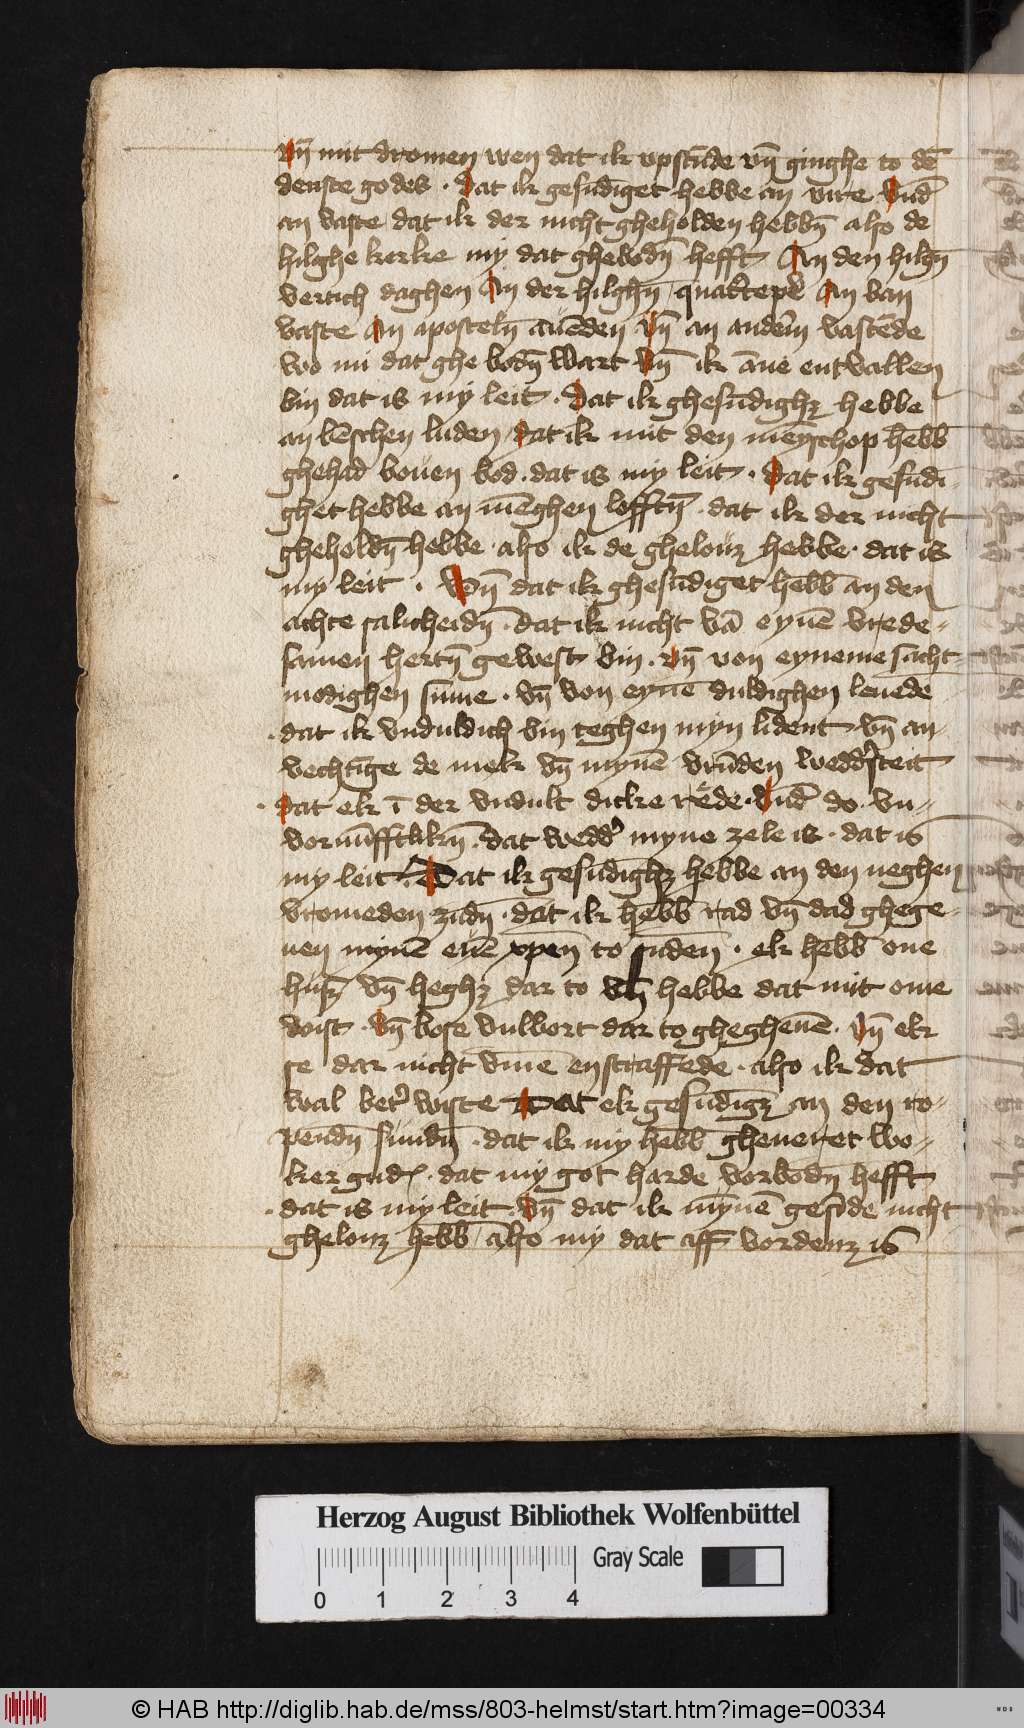 vn̄ mit dromen wen dat ik vpstūde vn̄ ginghe to dē
denste godes · Dat ik gesūdiget hebbe an vire vnd̄
an vaste dat ik der nicht gheholden hebbn̄ also de
hilghe kerke my dat ghebodn̄ hefft An den hilgn̄
vertich daghen An der hilghn̄ quatertēper An ban
vaste An aposteln̄ auēden vn̄ an andern̄ vastēde
wo mi dat ghe bodn̄ wart vn̄ ik āne entvallen
bin dat is my leit · Dat ik ghesūdighz hebbe
an bēschen luden dat ik mit den meynschop hebb̄
ghehad bouen bod · dat is my leit · Dat ik gesūdi-
ghet hebbe an mēghen lofftn̄ · dat ik der nicht
gheholdn̄ hebbe · also ik de ghelouz hebbe · dat is
my leit · Vn̄ dat ik ghesūdiget hebb̄ an den
achte salicheidn̄ · dat ik nicht vā eynē vrede-
samen hertn̄ gewest bin · vn̄ von eyneme sacht-
modighen sinne · vn̄ von eynē duldighen leuede
· dat ik vnduldich bin teghen myn lident vn̄ an-
vechtīge de mek vn̄ mynē vrūden wedderfteit
· Dat ek ī der vndult dicke rede · vnd̄ do vn-
vornūfftlikn̄ · dat wedder myne zele is · dat is
my leit · Dat ik gesūdighz hebbe an den neghen
vromeden zūdn̄ · dat ik hebb̄ rad vn̄ dad ghege-
uen mynē euē xpen̄ to sūden · ek hebb̄ one
husz vn̄ heghz dar to vn̄ hebbe dat mit one
woist · vn̄ bose vulbort dar to gheghenē · vn̄ ek
se dar nicht vme enstraffede · also ik dat
wal beter wiste Dat ek gesūdigz an den ro-
pendn̄ sundn̄ · dat ik my hebb̄ gheneret wo-
ker gude · dat my got harde vorbodn̄ hefft
· dat is my leit · vn̄ dat ik mynē gesīde nicht
ghelonz hebb̄ also my dat aff vordenz is
Herzog August Bibliothek Wolfenbüttel
Gray Scale
0 1 2 3 4
© HAB http://diglib.hab.de/mss/803-helmst/start.htm?image=00334